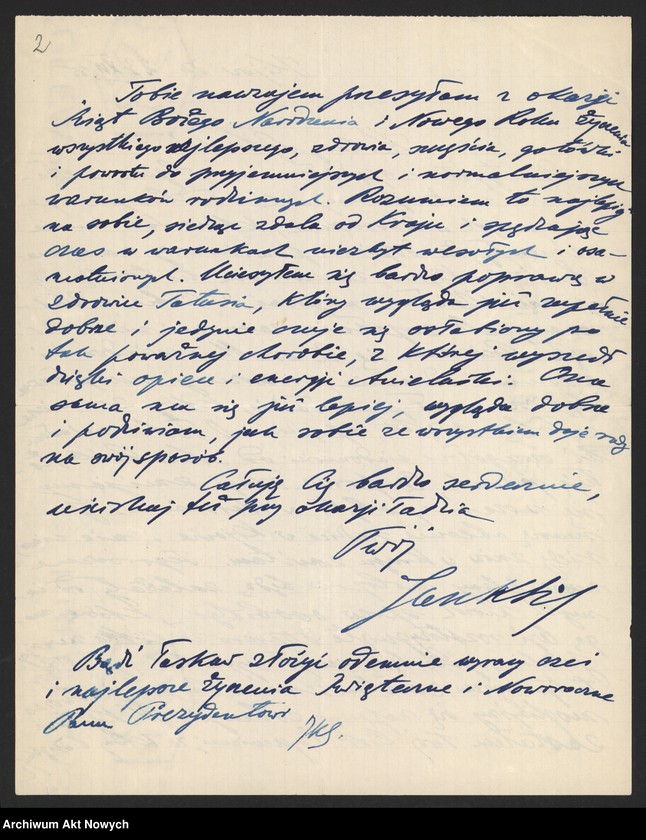 2
Tobie nawzajem przesyłam z okazji
Świąt Bożego Narodzenia i Nowego Roku życzenia
wszystkiego najlepszego, zdrowia, szczęścia, gotówki
i powrotu do przyjemniejszych i normalniejszych
warunków rodzinnych. Rozumiem to najlepiej
na sobie, siedząc zdala od Kraju i spędzając
czas w warunkach niezbyt wesołych i osa-
motnionych. Ucieszyłem się bardzo poprawą w
zdrowiu Tatusia, który wygląda już zupełnie
dobrze i jedynie czuje się osłabiony po
tak poważnej chorobie, z której wyszedł
dzięki opiece i energji Anielki. Ona
sama ma się już lepiej, wygląda dobrze
i podziwiam, jak sobie ze wszystkiem daje radę
na swój sposób.
Całuję Cię bardzo serdecznie,
uściskaj też przy okazji Tadzia
Twój
Jan
Bądź łaskaw złożyć odemnie wyrazy czci
i najlepsze życzenia Świąteczne i Noworoczne
Panu Prezydentowi
Archiwum Akt Nowych